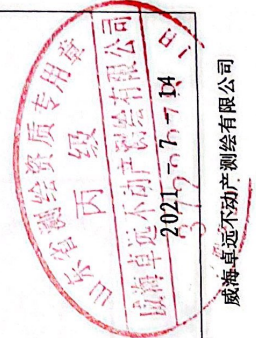 山东省测绘资质专用章
丙级
威海卓远不动产测绘有限公司
2021-7-14
威海卓远不动产测绘有限公司